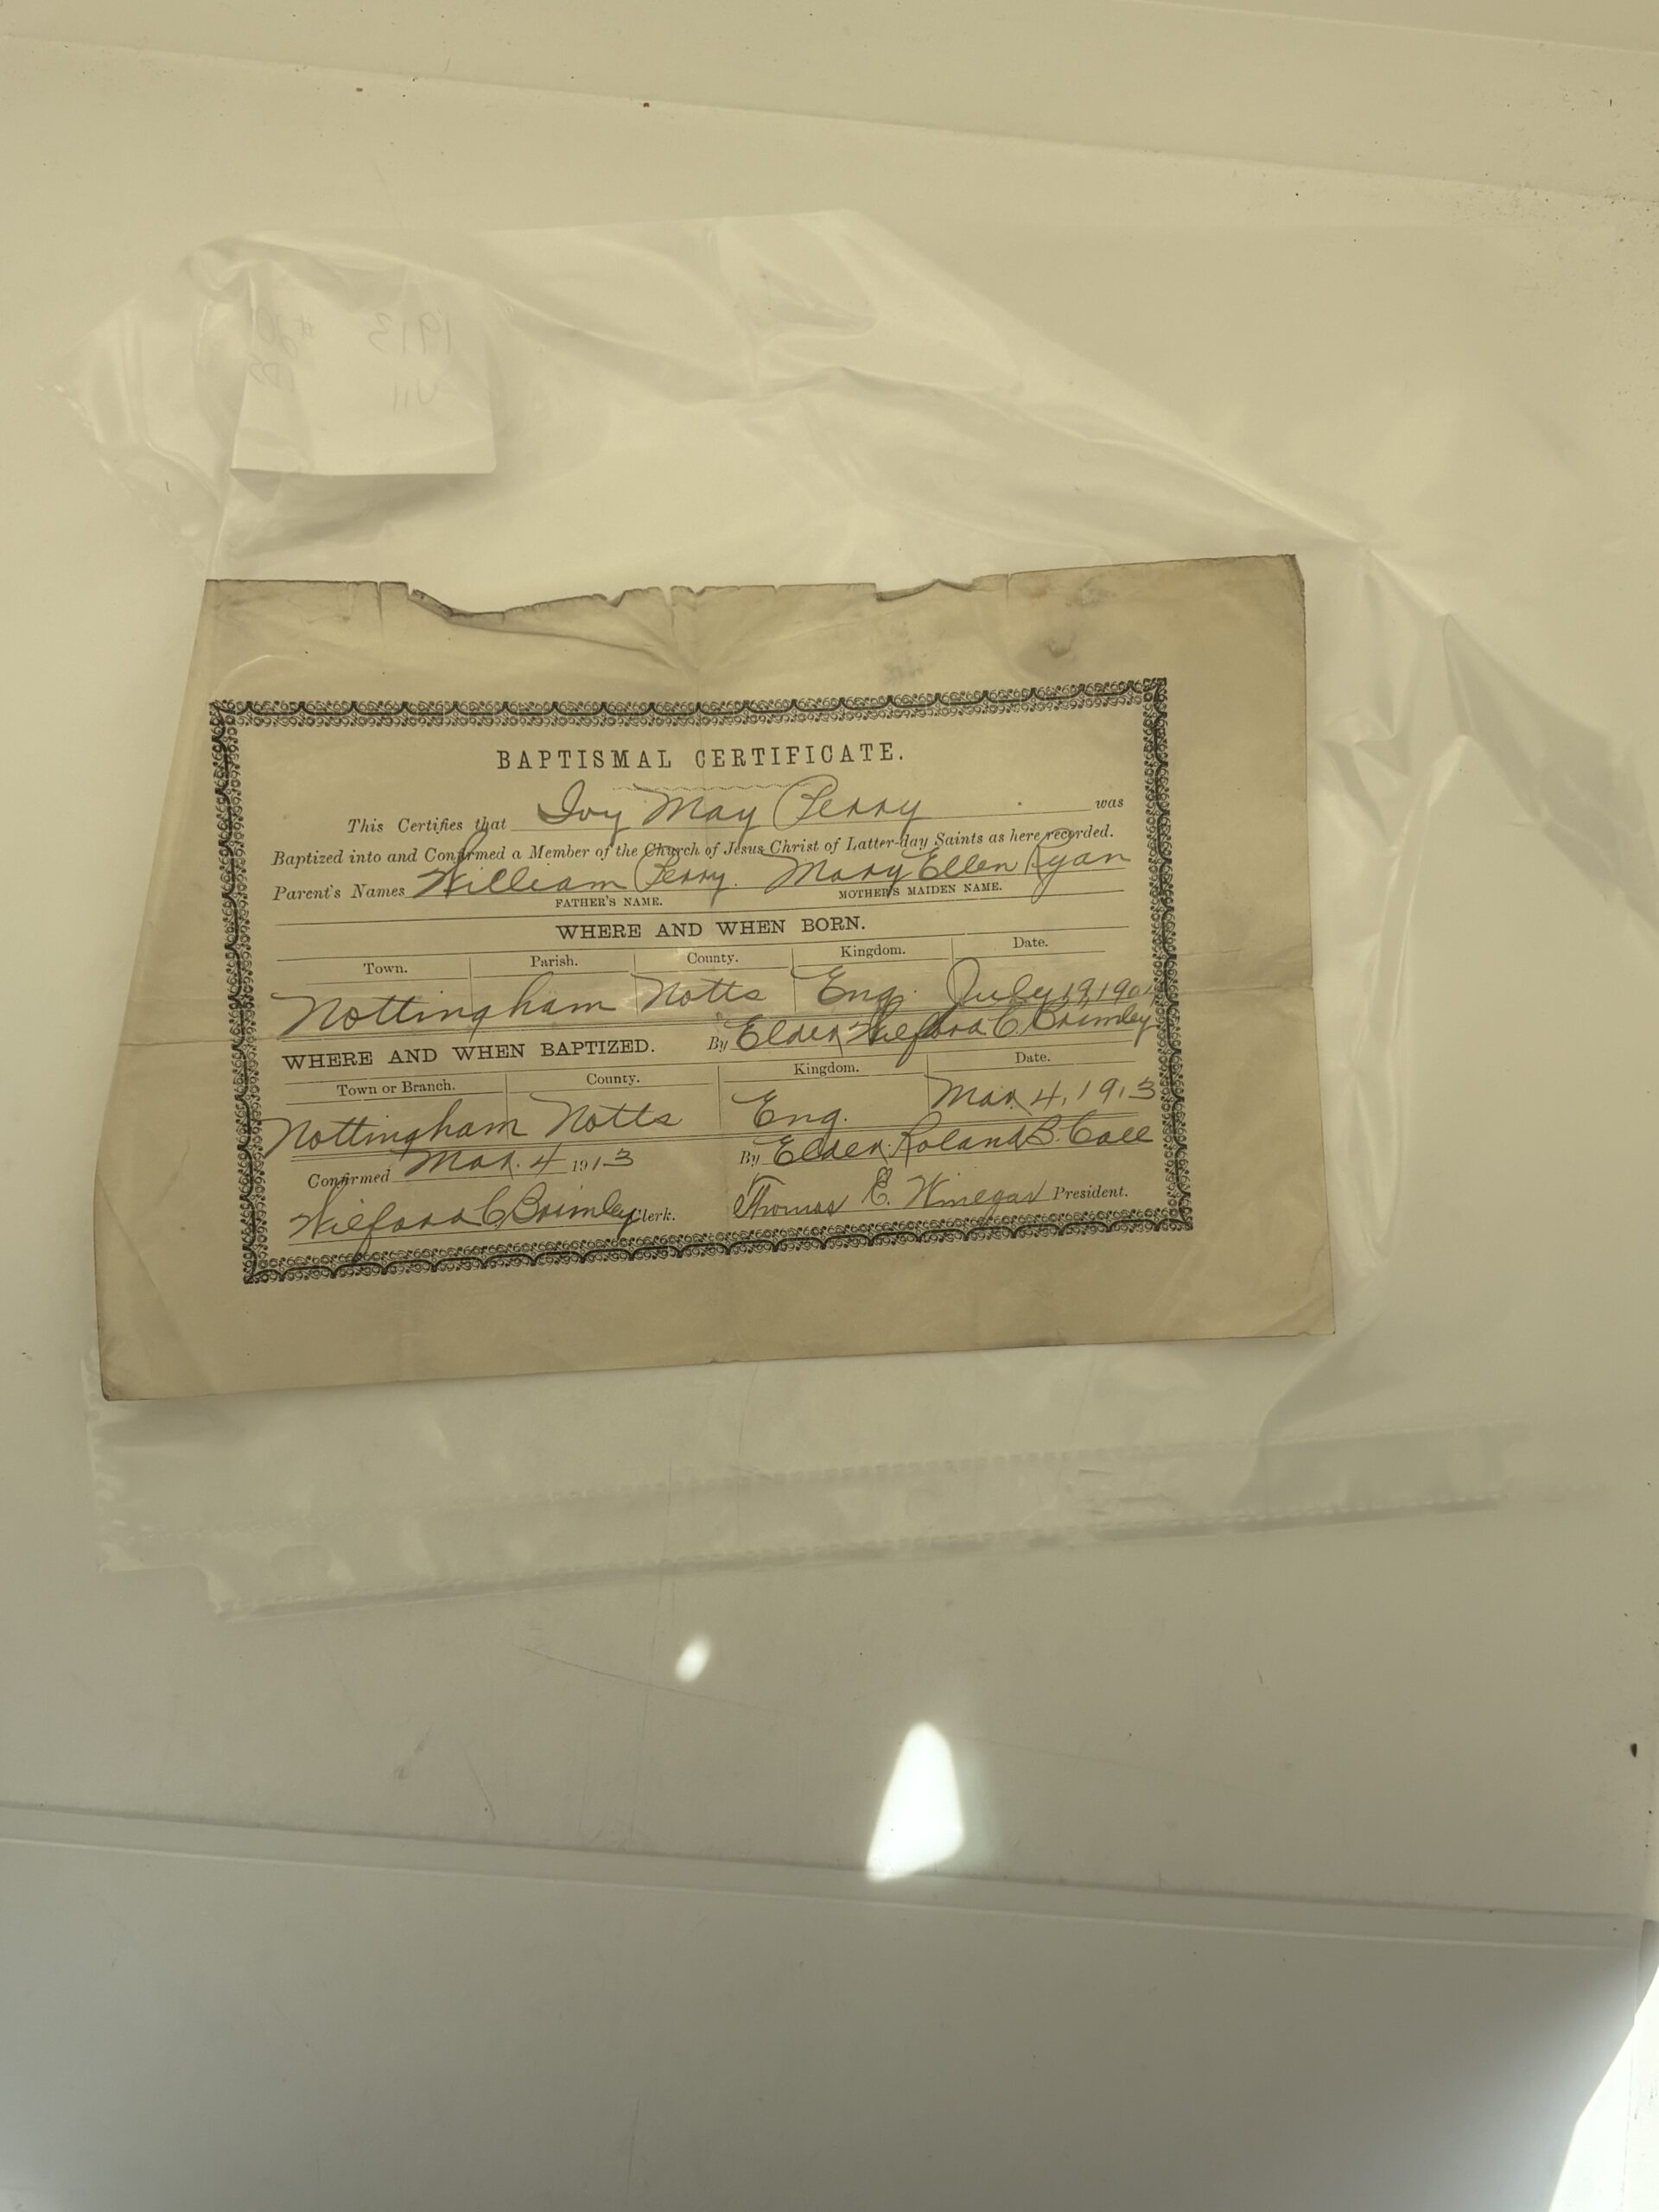 1913
VII
BAPTISMAL CERTIFICATE.
This Certifies that Ivy May Perry was
Baptized into and Confirmed a Member of the Church of Jesus Christ of Latter-day Saints as here recorded.
Parent's Names William Perry. Mary Ellen Ryan
FATHER'S NAME. MOTHER'S MAIDEN NAME.
WHERE AND WHEN BORN.
Town. Parish. County. Kingdom. Date.
Nottingham Notts Eng. July 19, 1901
By Elder Wilford C Brimley
WHERE AND WHEN BAPTIZED.
Town or Branch. County. Kingdom. Date.
Nottingham Notts Eng. Mar. 4, 1913
Confirmed Mar. 4 1913 By Elder Roland B. Call
Wilford C Brimley Clerk. Thomas E. Winegar President.